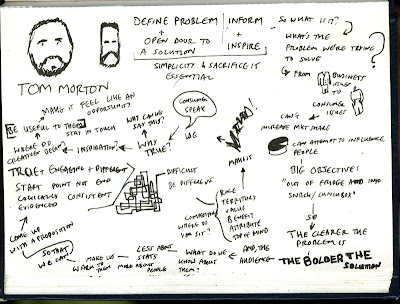 TOM MORTON
DEFINE PROBLEM
+
OPEN DOOR TO
A SOLUTION
INFORM
+
INSPIRE
SIMPLICITY & SACRIFICE IS
ESSENTIAL
SO WHAT IS IT?
WHAT'S THE
PROBLEM WE'RE TRYING
TO SOLVE?
FROM
BUSINESS
ISSUE
TO
CONSUMER
ISSUES
CAN'T
INCREASE MKT SHARE
CAN ATTEMPT TO INFLUENCE
PEOPLE
BIG OBJECTIVE!
"OUT OF FRIDGE AND INTO
SNACK/LUNCHBOX"
SO
THE CLEARER THE
PROBLEM IS
THE BOLDER THE
SOLUTION
MAKE IT FEEL LIKE AN
OPPORTUNITY
BE USEFUL TO THEM
STAY IN TOUCH
WHERE DO
CREATIVES
INSPIRATION
WHY CAN WE
SAY THIS?
WHY
TRUE?
CONSUMER
SPEAK
WE
ANALYSE
TRUE + ENGAGING + DIFFERENT
START POINT NOT END
LOGICALLY CONSISTENT
EVIDENCED
DIFFICULT
BE DIFFERENT
COMPETITORS
WHERE DO
THEM SIT?
ROLE
TERRITORY
VALUE
BENEFIT
ATTRIBUTE
TOP OF MIND
AND, THE
AUDIENCE
WHAT DO WE
KNOW ABOUT
THEM?
LESS ABOUT
STATS
MORE ABOUT
PEOPLE
MAKE US
WARM TO
THEM
SO THAT
WE CAN
COME UP
WITH A PROPOSITION